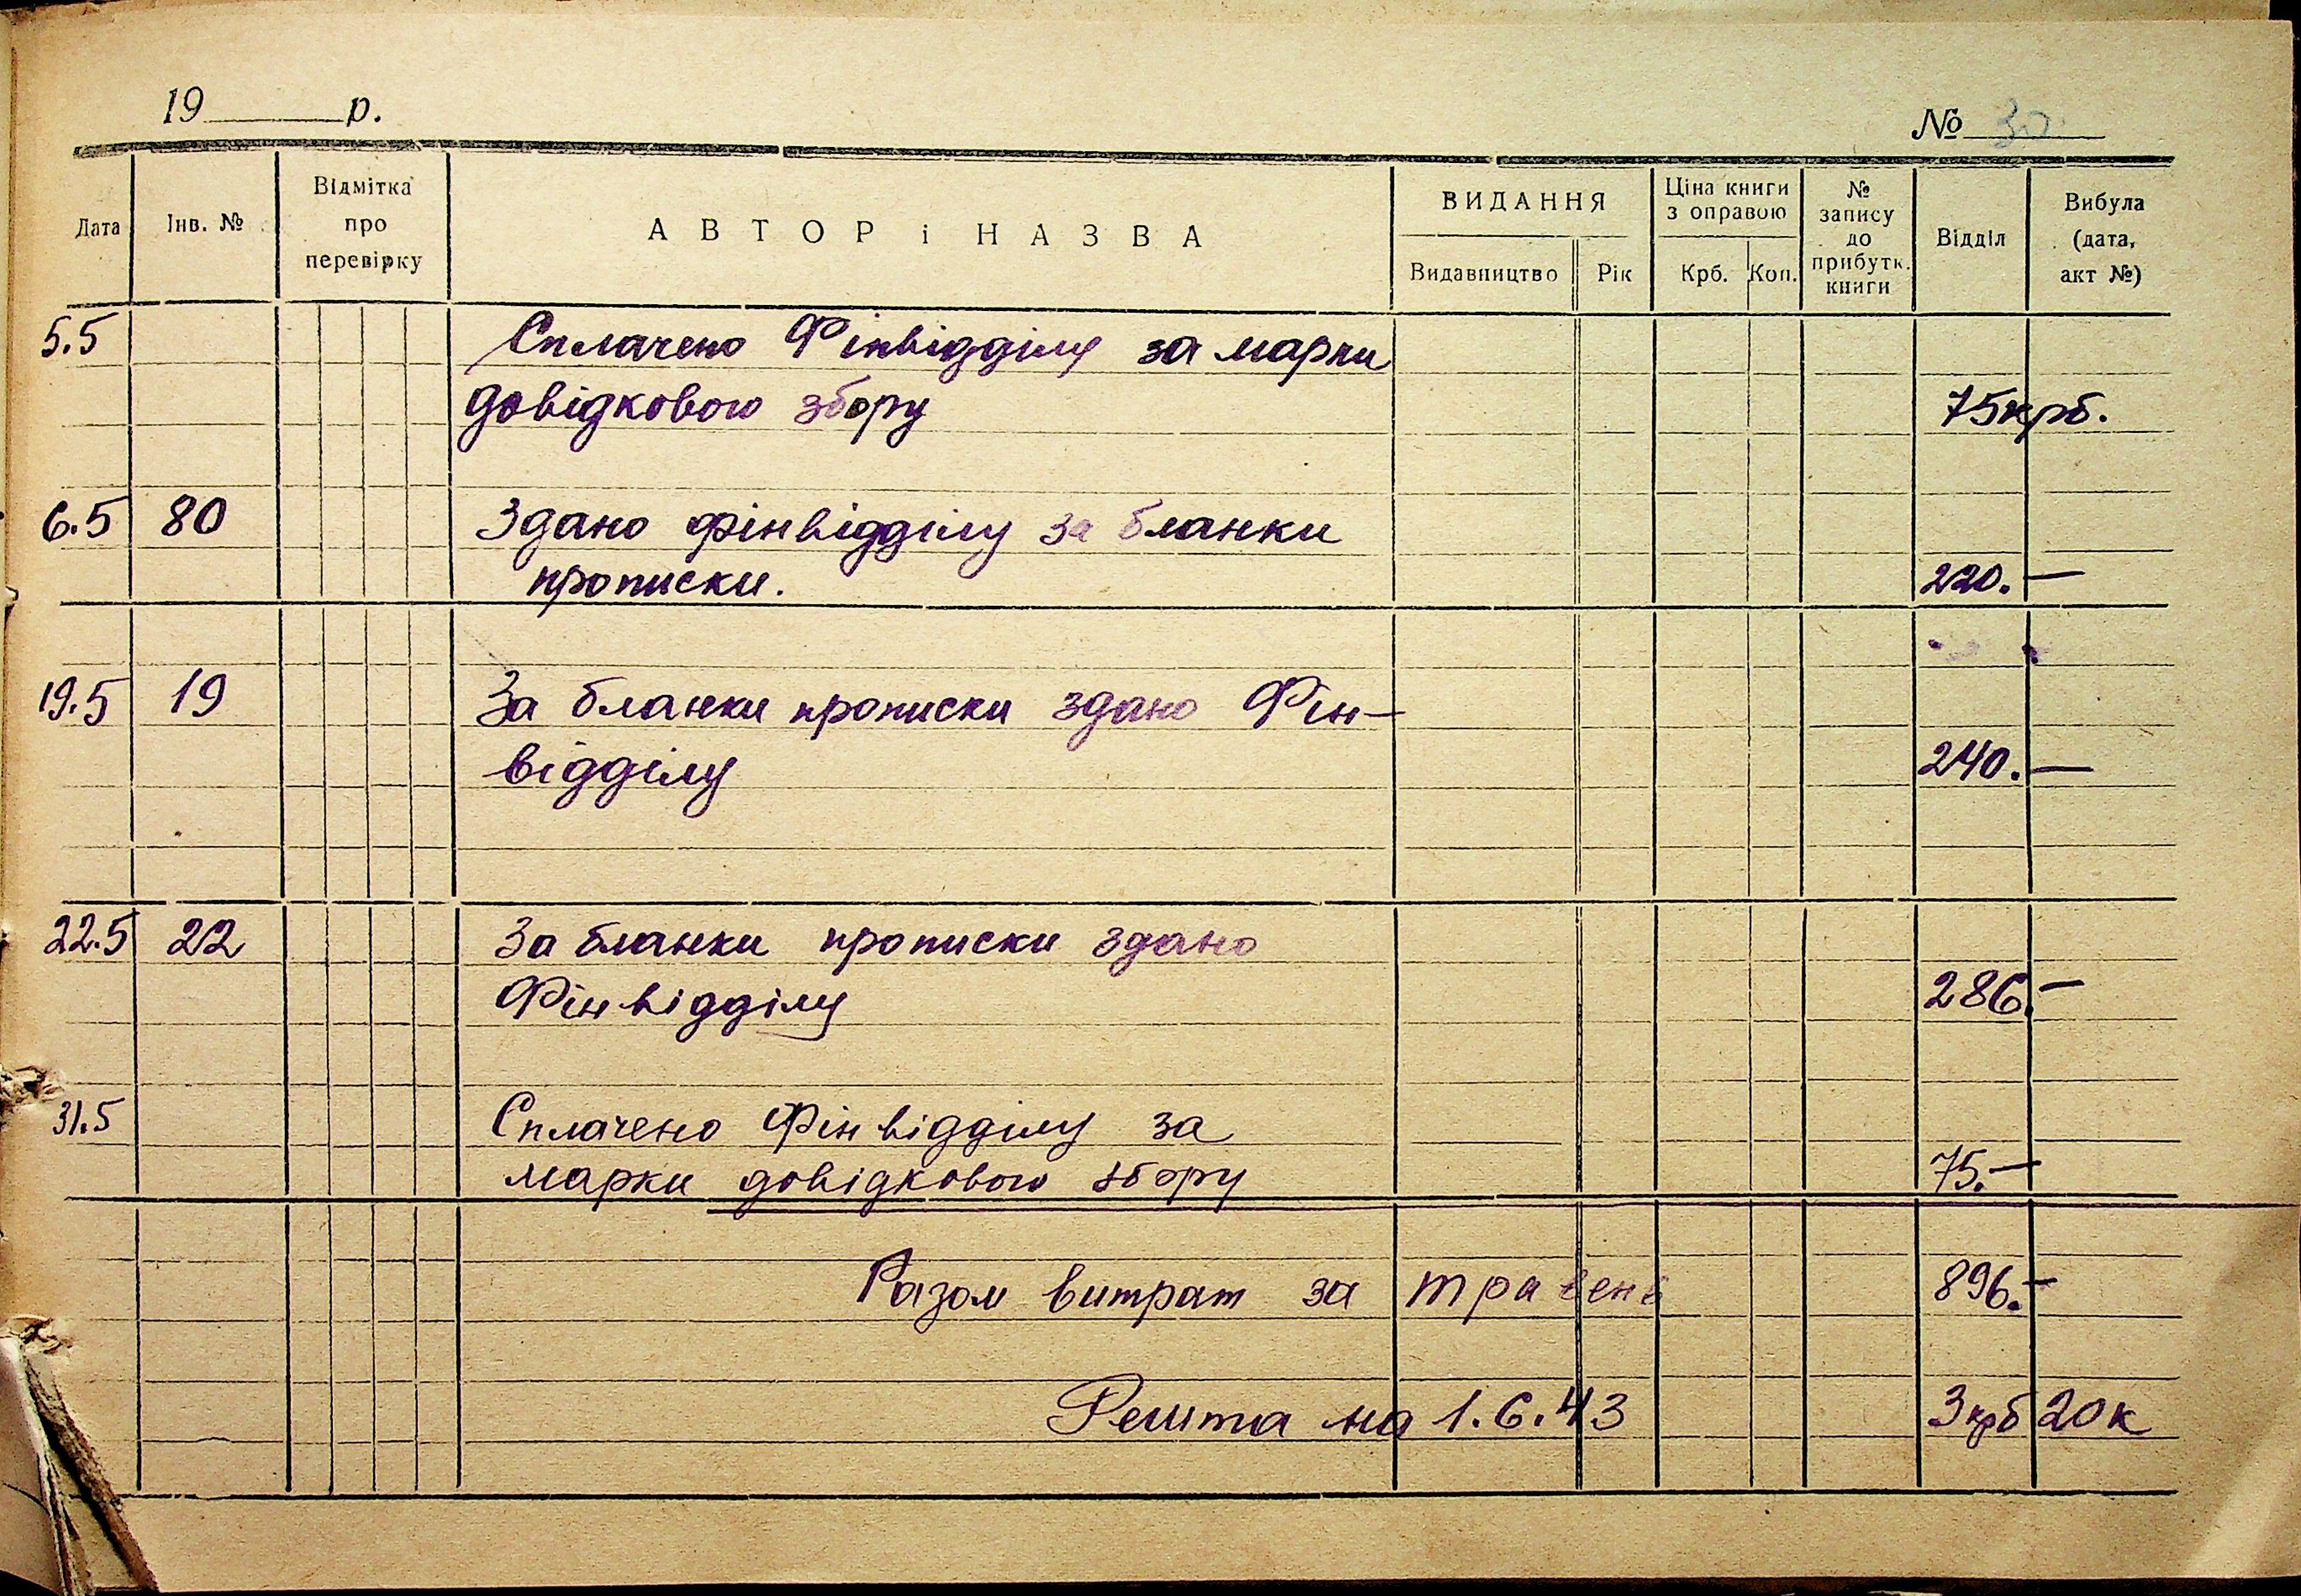 19 р.
№ 30
Дата
Інв. №
Відмітка
про
перевірку
АВТОР і НАЗВА
ВИДАННЯ
Видавництво
Рік
Ціна книги
з оправою
Крб.
Коп.
№
запису
до
прибутк.
книги
Відділ
Вибула
(дата,
акт №)
5.5 Сплачено Фінвідділу за марки
довідкового збору 75крб.
6.5 80 Здано фінвідділу за бланки
прописки. 220.—
19.5 19 За бланки прописки здано Фін-
відділу 240.—
22.5 22 За бланки прописки здано
Фінвідділу 286.—
31.5 Сплачено Фінвідділу за
марки довідкового збору 75.—
Разом витрат за травень 896.—
Решта на 1.6.43 3крб 20к